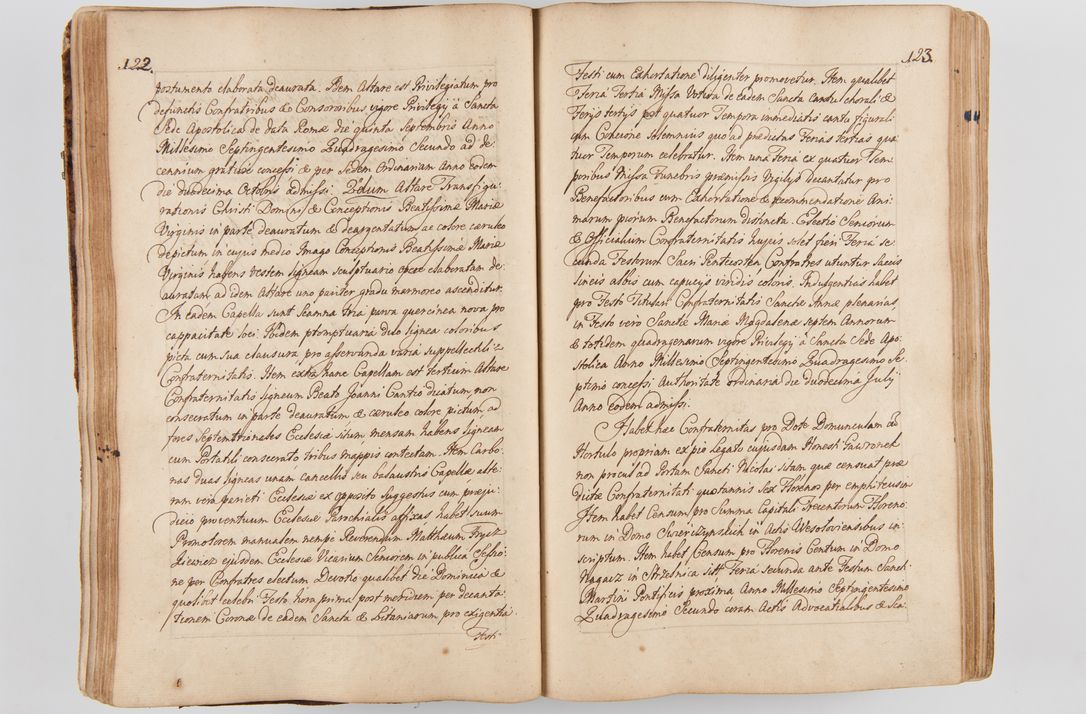 122.
postumento elaborata deaurata. Item Altare est Privilegiatum pro
defunctis Confratribus & Consororibus vigore Privilegÿ à Sancta
Sede Apostolica de data Romæ die quinta Septembris Anno
Millesimo Septingentesimo Quadragesimo Secundo ad de-
cennium gratiose concessi & per Sedem Ordinariam Anno eodem
die duodecima Octobris admissi. 2dum Altare Transfigu-
rationis Christi Domini & Conceptionis Beatissimæ Mariæ
Virginis in parte deauratum & deargentatum ac colore cæruleo
depictum in cujus medio Imago Conceptionis Beatissimæ Mariæ
Virginis habens vestem ligneam sculptuario opere elaboratam de-
auratam, ad idem Altare uno pariter gradu marmoreo ascenditur.
In eadem Capella sunt scamna tria parva quercinea nova pro
cappacitate loci. Ibidem promptuaria duo lignea coloribus
picta cum sua clausura pro asservanda varia suppellectili
Confraternitatis. Item extra hanc Capellam est tertium Altare
Confraternitatis ligneum Beato Joanni Cantio dicatum, non
consecratum in parte deauratum & cæruleo colore pictum, ad
fores Septemtrionales Ecclesiæ situm mensam habens ligneam
cum Portatili consecrato tribus mappis contectam. Item Carbo-
nas duas ligneas unam cancellis seu balaustris Capellæ alte-
ram verò parieti Ecclesiæ ex opposito Suggestus cum præju-
dicio proventuum Ecclesiæ Parochialis affixas habet suum
Promotorem manualem nempe Reverendum Matthæum Frycz
Jiewicz ejusdem Ecclesiæ Vicarium Seniorem in publica Sessio-
ne per Confratres electum Devotio qualibet die Dominica &
quolibet celebri Festo hora prima post meridiem per decanta-
tionem Coronæ de eadem Sancta & Litaniarum pro exigentia
Festi
123.
Festi cum Exhortatione diligenter promovetur. Item qualibet
Feria Tertia Missa Votiva de eadem Sancta cantu chorali &
Ferÿs tertÿs post quatuor Tempora immediatis cantu figurali
cum Concione solemnius quo ad prædictas Ferias tertias qua-
tuor Temporum celebratur. Item una Feria ex quatuor Tem-
poribus Missa Funebris præmissis Vigilÿs decantatur pro
Benefactoribus cum Exhortatione & recommendatione Ani-
marum piorum Benefactorum distincta. Electio Seniorum
& Officialium Confraternitatis hujus solet fieri Feria se-
cunda Festorum Sacri Pentecosten, Confratres utuntur Saccis
lineis albis cum capucijs viridis coloris. Indulgentias habet
pro Festo Tituli Confraternitatis Sanctæ Annæ plenarias
in Festo verò Sanctæ Mariæ Magdalenæ septem Annorum
& totidem quadragenarum vigore Privilegÿ à Sancta Sede Apo-
stolica Anno Millesimo Septingentesimo Quadragesimo Se-
ptimo concessi Authoritate ordinaria die duodecima Julÿ
Anno eodem admissi.
Habet hæc Confraternitas pro Dote Domunculam cū
Hortulo propriam ex pio Legato cujusdam Honesti Gawronek
non procul ad Portam Sancti Nicolai sitam quæ censuat præ-
dictæ Confraternitati quotannis sex Florenos per emphiteusim
Item habet Censum pro Summa Capitali Trecentorum Floreno-
rum in Domo Swierczynskich in Actis Wesoloviensibus in-
scriptum. Item habet Censum pro Florenis Centum in Domo
Wagacz in Strzelnica sitt Feria secunda ante Festum Sancti
Martini Pontificis proxima Anno Millesimo Septingentesimo
Quadragesimo Secundo coram Actis Advocatialibus & Sca-